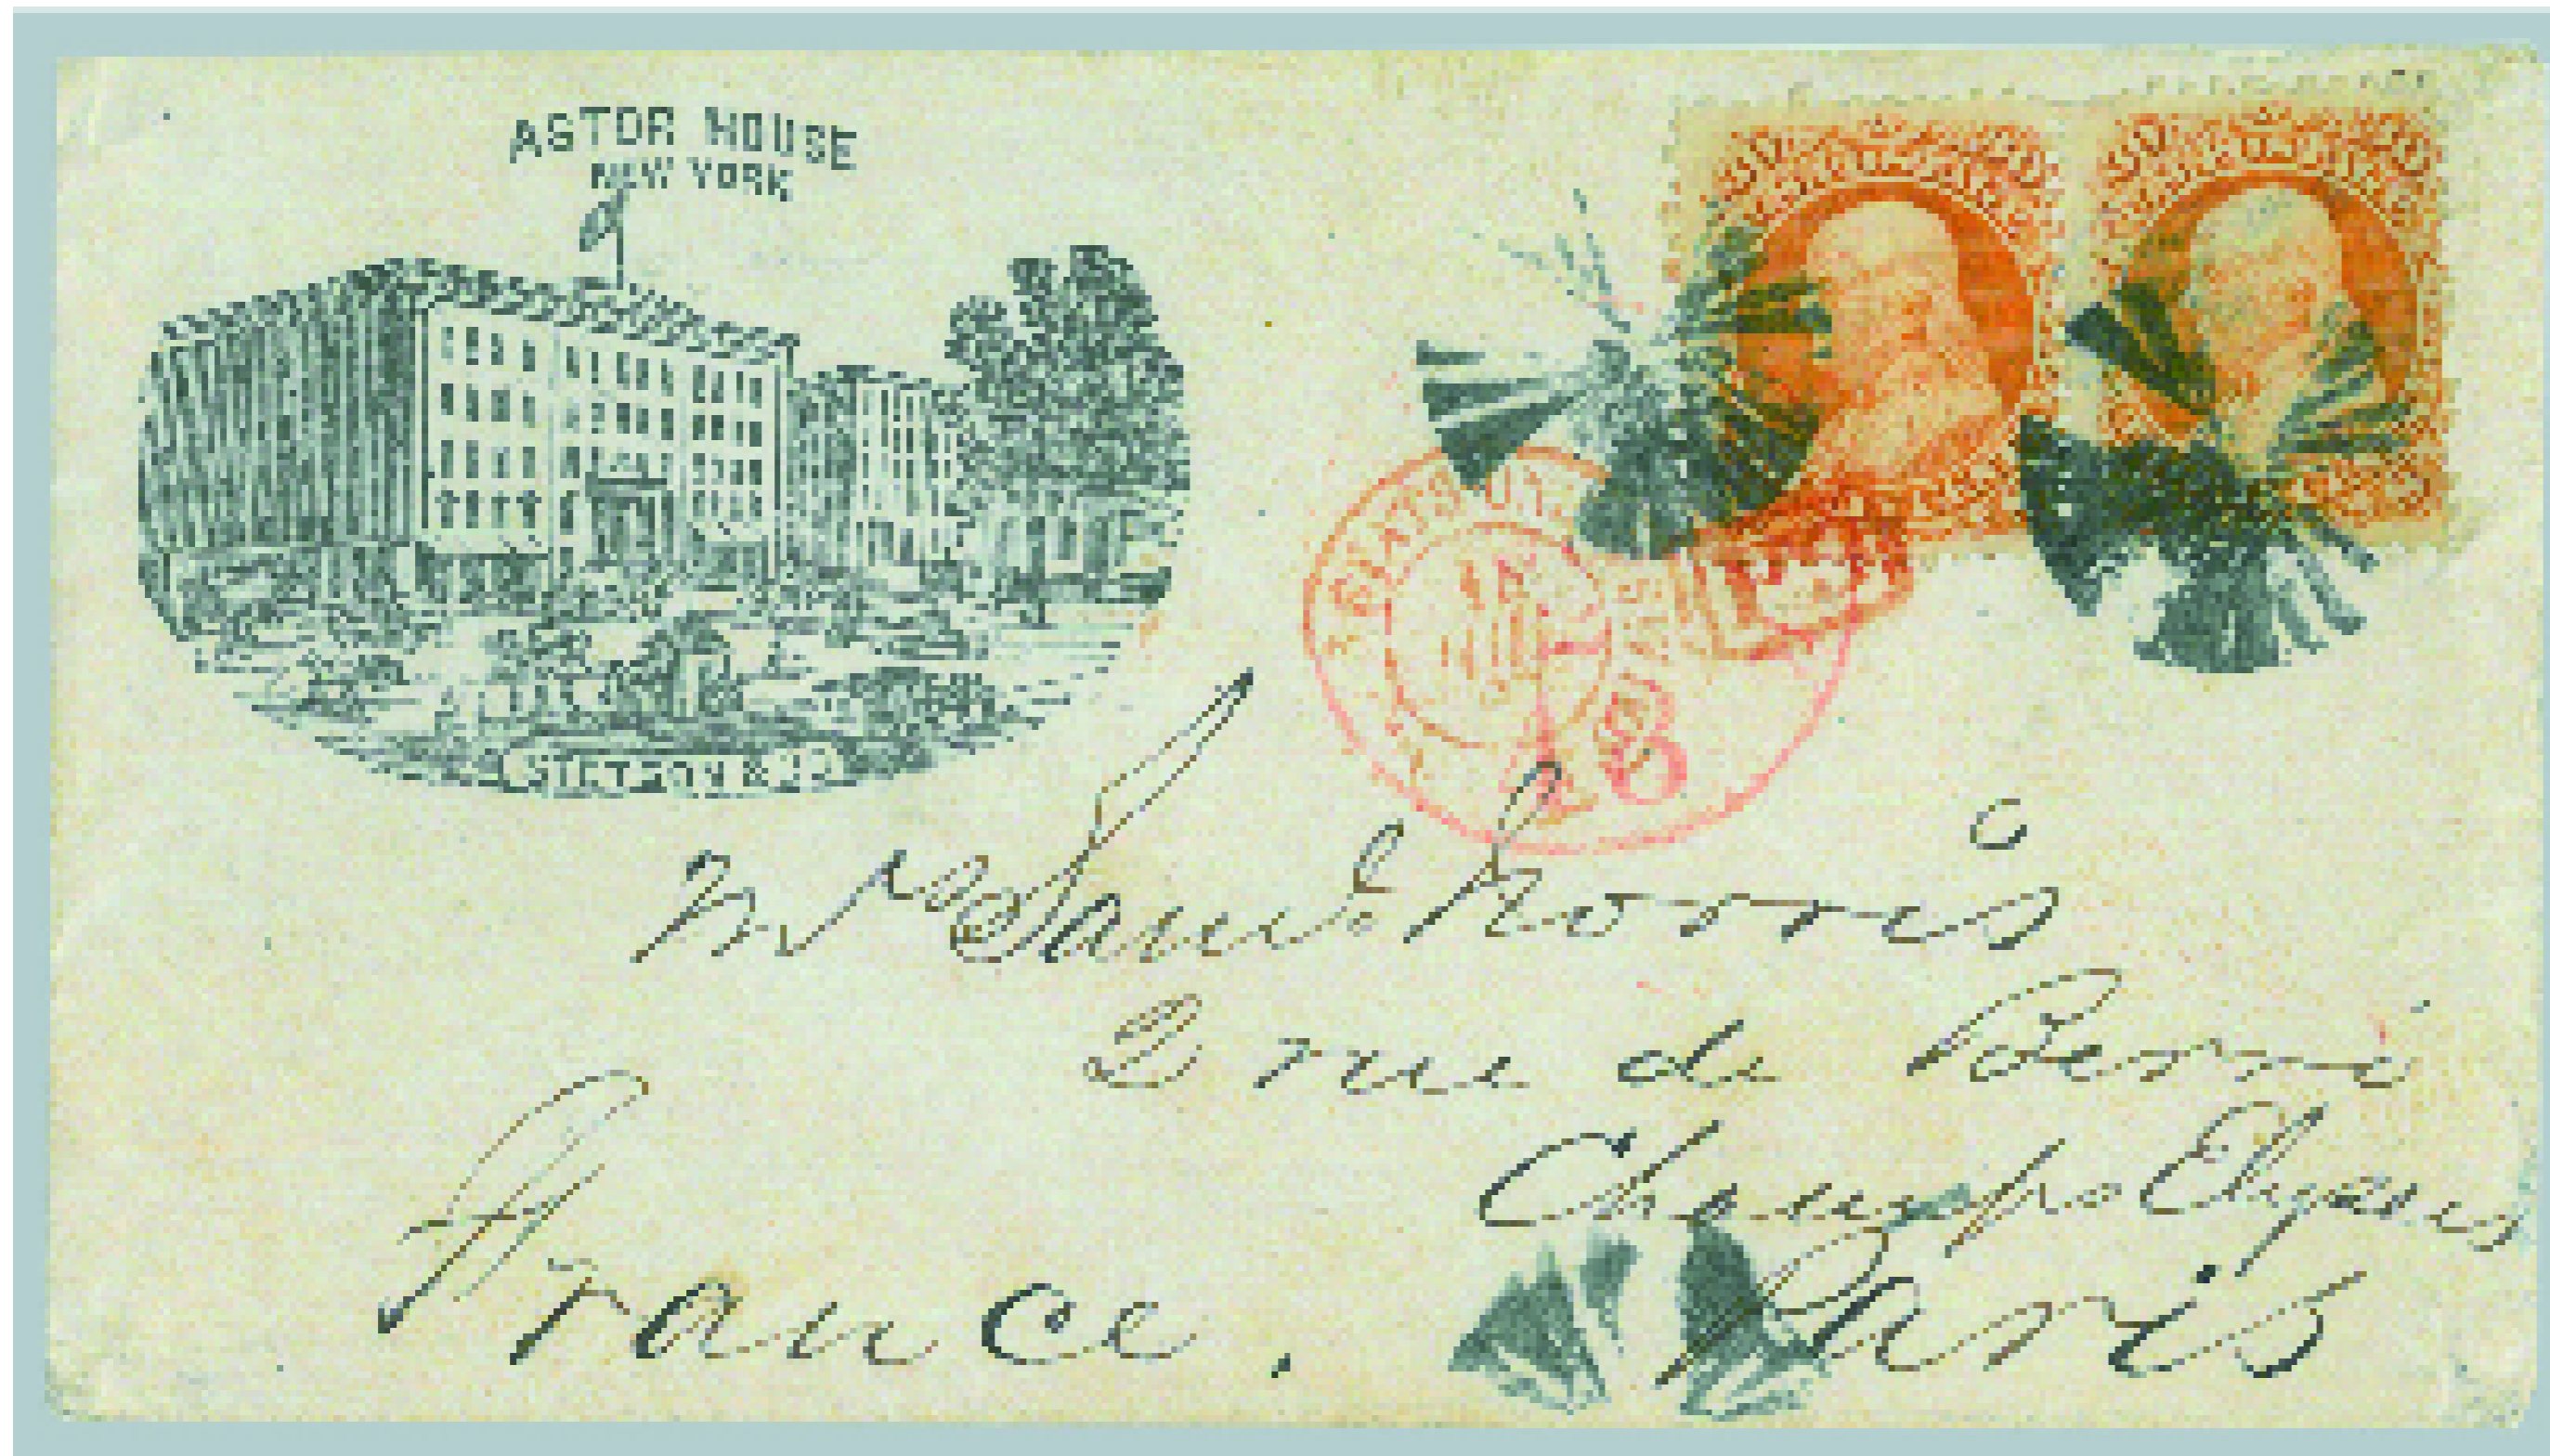 ASTOR HOUSE
NEW YORK
STETSON & CO
18
Mrs Saml Norris
2 rue de Berri
Champs Elysees
Paris
France.